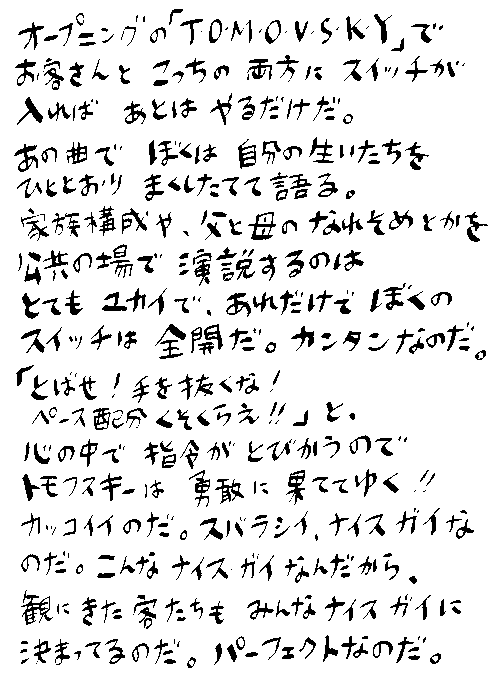 オープニングの「T・O・M・O・V・S・K・Y」で
お客さんと こっちの 両方に スイッチが
入れば あとは やるだけだ。
あの曲で ぼくは 自分の生いたちを
ひととおり まくしたてて語る。
家族構成や、父と母の なれそめとかを
公共の場で 演説するのは
とても ユカイで、あれだけで ぼくの
スイッチは 全開だ。カンタンなのだ。
「とばせ！手を抜くな！
ペース配分 くそくらえ!!」と、
心の中で 指令が とびかうので
トモフスキーは 勇敢に 果ててゆく!!
カッコイイのだ。スバラシイ、ナイスガイな
のだ。こんな ナイスガイなんだから、
観にきた 客たちも みんなナイスガイに
決まってるのだ。パーフェクトなのだ。